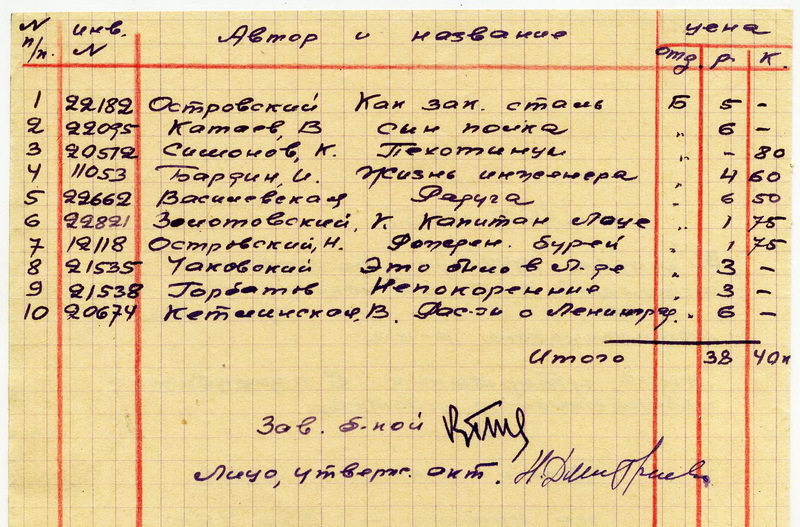 N п/п. инв. N Автор и название цена
отд. р. к.
1 22182 Островский Как зак. сталь Б 5 -
2 22095 Катаев, В Сын полка " 6 -
3 20512 Симонов, К. Пехотинцы " - 80
4 11053 Бардин, И. Жизнь инженера " 4 60
5 22662 Василевская Радуга " 6 50
6 22821 Золотовский, К. Капитан " 1 75
7 12118 Островский, Н. Рожден. бурей " 1 75
8 21535 Чаковский Это было в Л-де " 3 -
9 21538 Горбатов Непокоренние " 3 -
10 20674 Кетлинская, В. Рас-зы о Ленинград. " 6 -
Итого 38 40к
Зав. б-кой
Лицо, утверж. акт. Н. Дмитриев